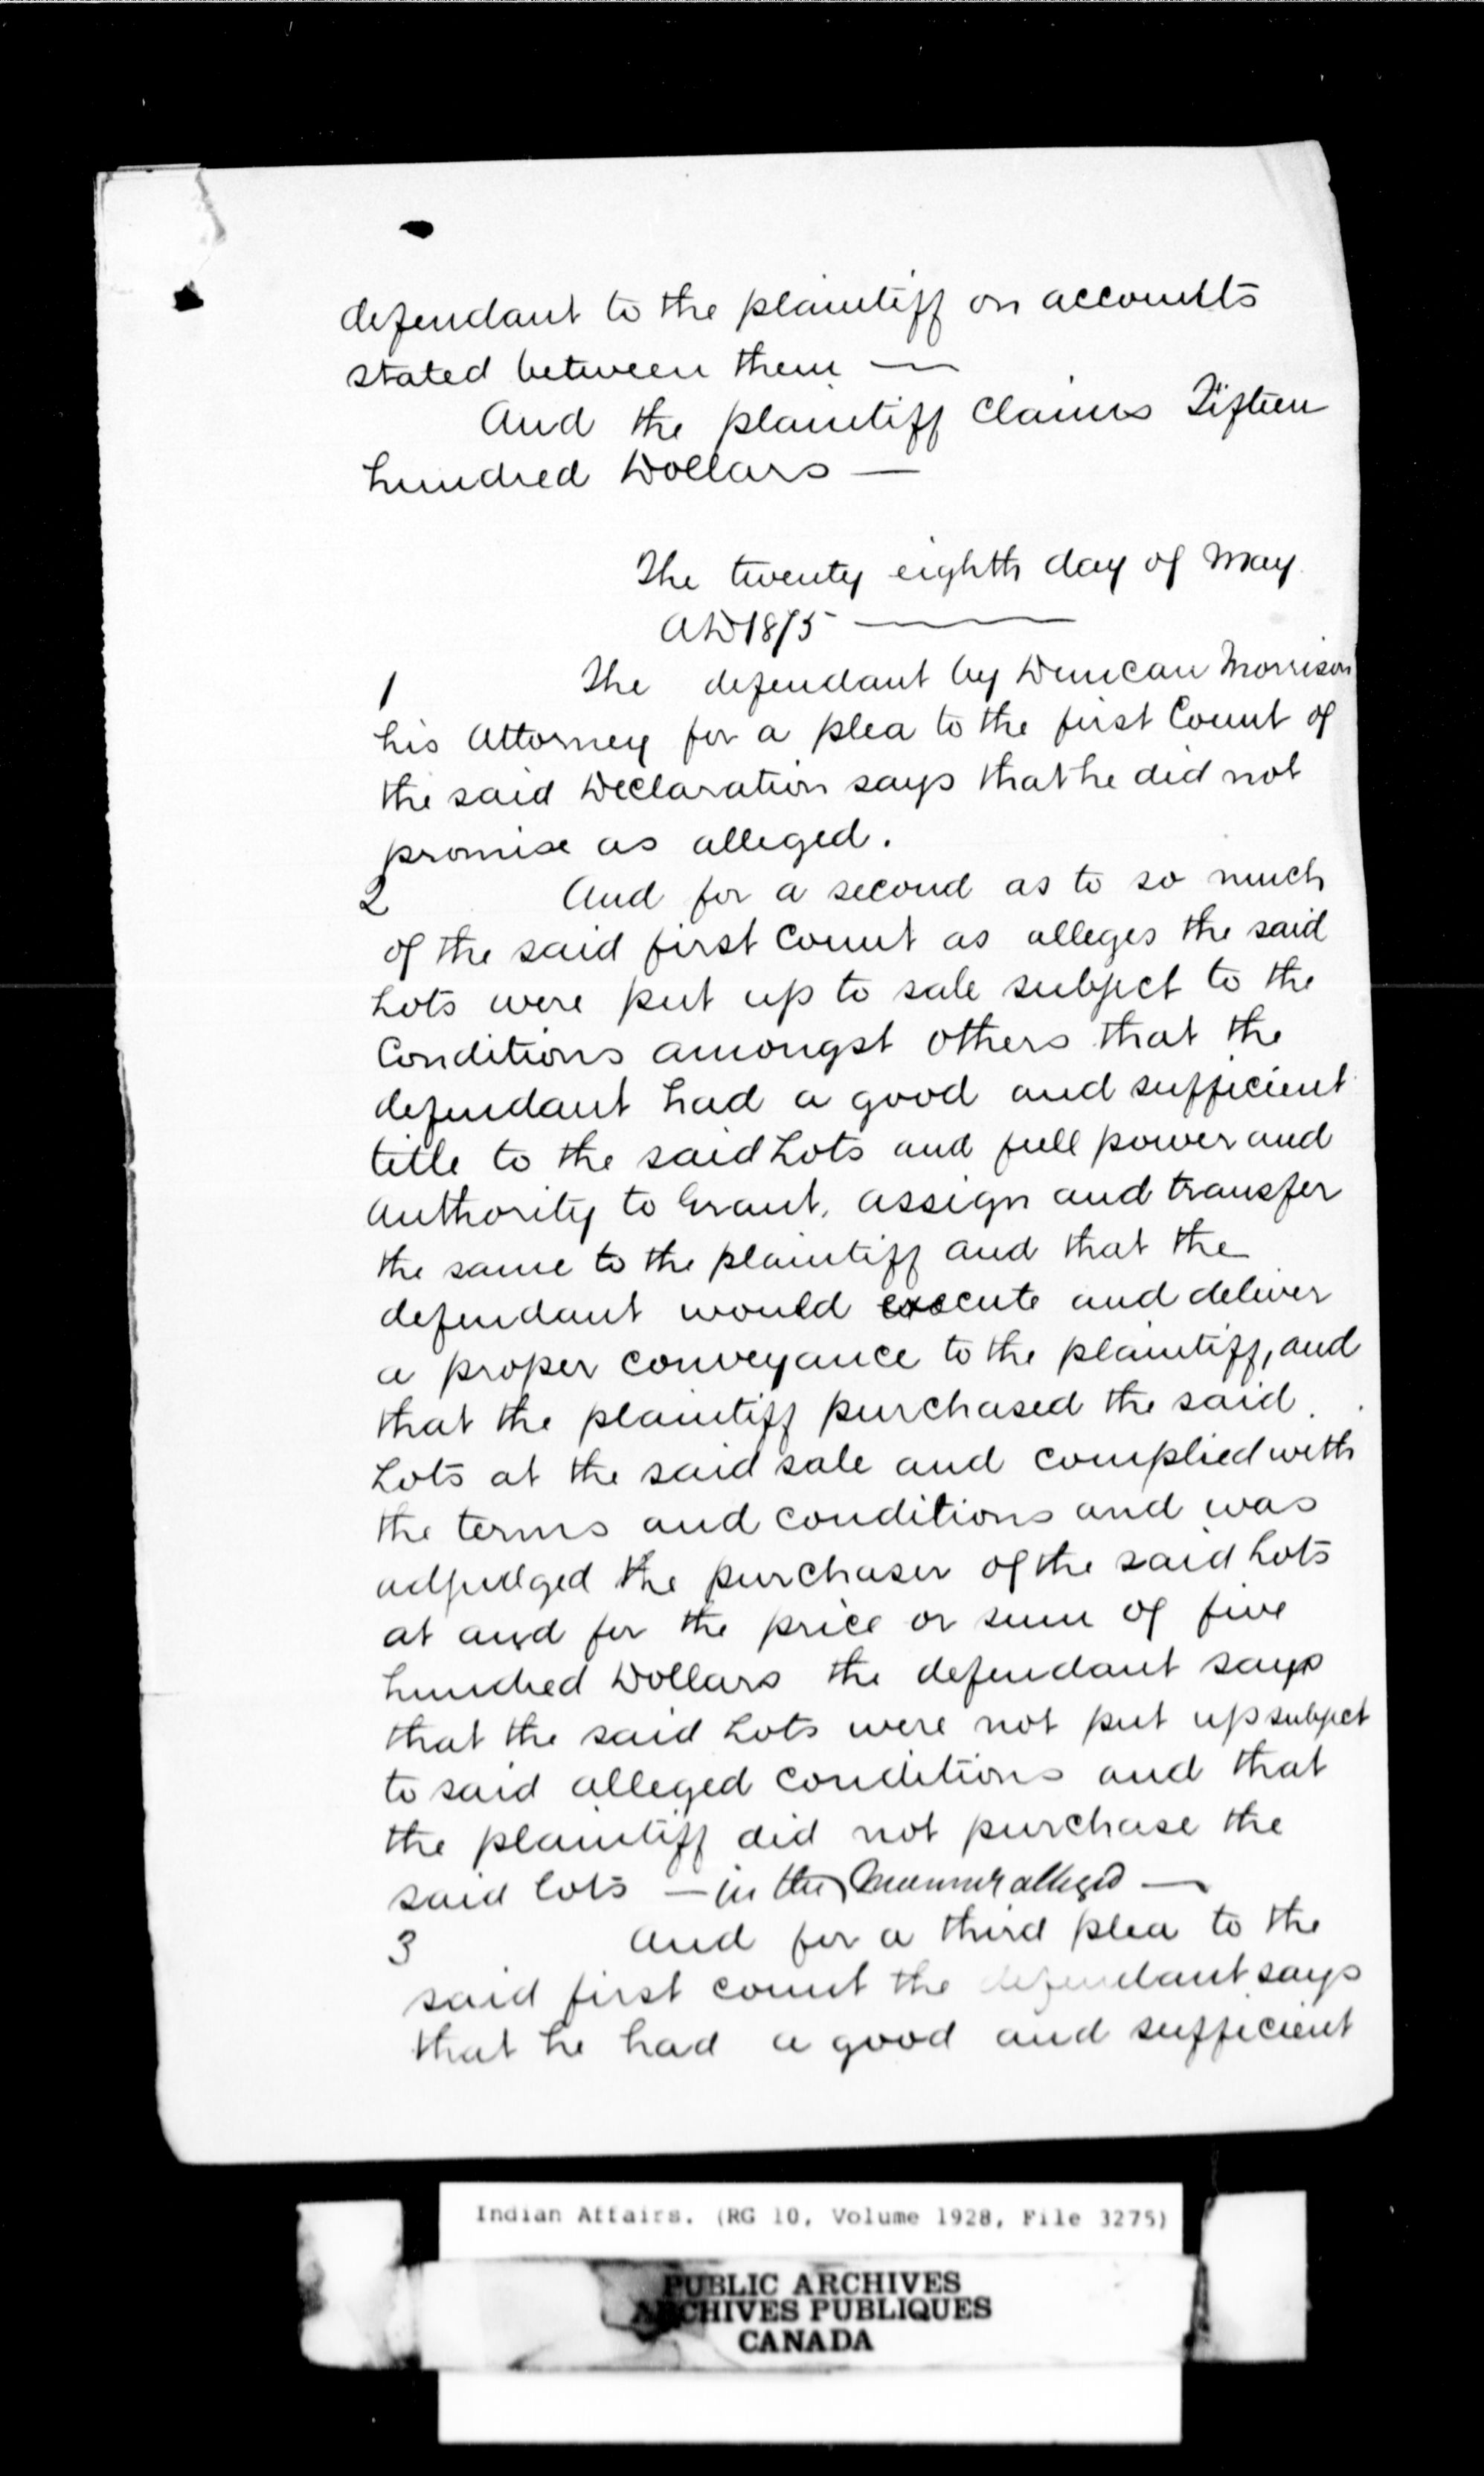 defendant to the plaintiff on accounts
stated between them —
And the plaintiff Claims Fifteen
hundred Dollars —
The twenty eighth day of May
AD 1875 —
1 The defendant by Duncan Morrison
his Attorney for a plea to the first Count of
the said Declaration says that he did not
promise as alleged.
2 And for a second as to so much
of the said first Count as alleges the said
Lots were put up to sale subject to the
Conditions amongst others that the
defendant had a good and sufficient
title to the said Lots and full power and
Authority to Grant, assign and transfer
the same to the plaintiff and that the
defendant would execute and deliver
a proper conveyance to the plaintiff, and
that the plaintiff purchased the said
Lots at the said sale and complied with
the terms and conditions and was
adjudged the purchaser of the said Lots
at and for the price or sum of five
hundred Dollars the defendant says
that the said Lots were not put up subject
to said alleged conditions and that
the plaintiff did not purchase the
said lots — in the manner alleged —
3 And for a third plea to the
said first count the defendant says
that he had a good and sufficient
Indian Affairs. (RG 10, Volume 1928, File 3275)
PUBLIC ARCHIVES
ARCHIVES PUBLIQUES
CANADA